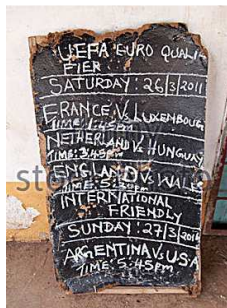 UEFA EURO QUALI-
FIER
SATURDAY: 26/3/2011
FRANCE V LUXEMBOUG
TIME: 1:45PM
NETHERLAND V HUNGUAY
TIME: 3:45PM
ENGLAND V WALS
TIME: 5:30PM
INTERNATIONAL
FRIENDLY
SUNDAY: 27/3/201
ARGENTINA V USA
TIME: 5:45PM